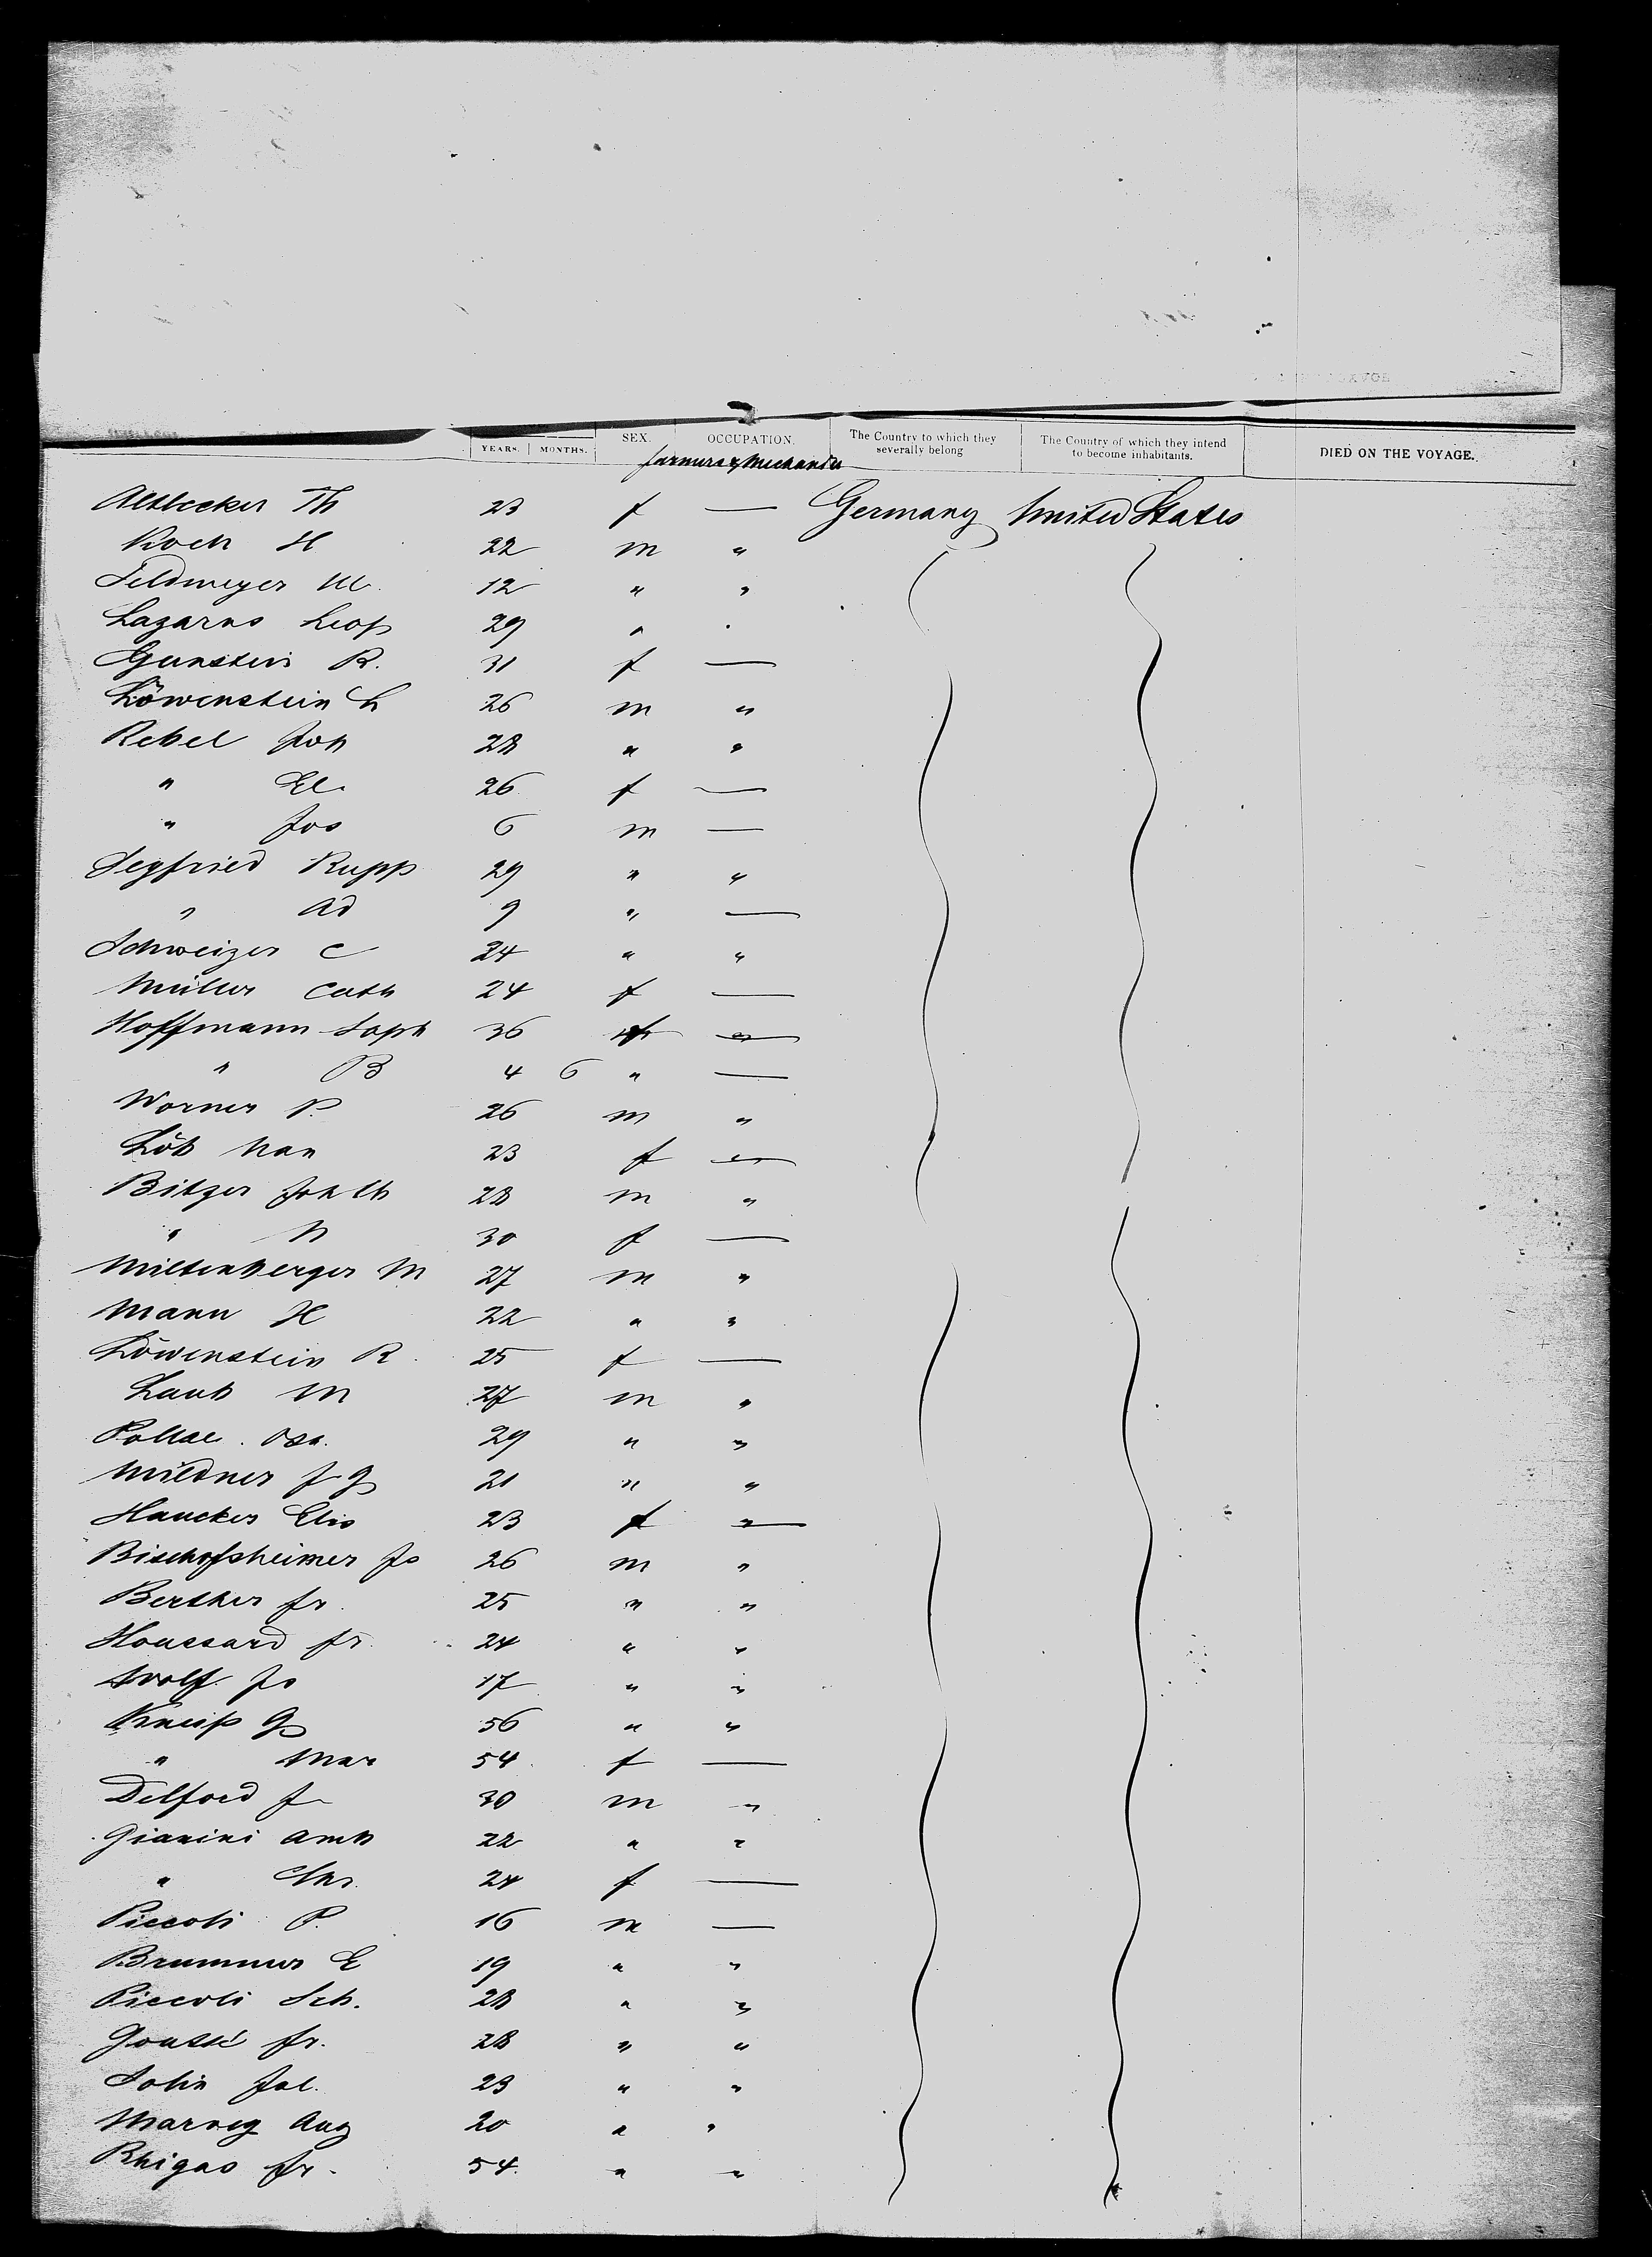 YEARS. MONTHS. SEX. OCCUPATION. The Country to which they severally belong The Country of which they intend to become inhabitants. DIED ON THE VOYAGE.
farmers & Mechanics
Altbecker Th 23 f — Germany United States
Koch H 22 m "
Feldmeyer M. 12 " "
Lazarus Leop 29 "
Gunstein R. 31 f —
Löwenstein L 26 m "
Rebel Joh 28 " "
" El. 26 f —
" Jos 6 m —
Segfried Rupp 29 " "
" Ad 9 " —
Schweizer C 24 " "
Müller Cath 24 f —
Hoffmann Soph 36 f —
" B 4 6 " —
Worner P. 26 m "
Löb Nan 23 f —
Bitzer Joh 28 m "
" N 30 f —
Miltenberger M 27 m "
Mann H 22 " "
Löwenstein R. 25 f —
Laub M 27 m "
Pollac 29 " "
Mildner J G 21 " "
Haucker Elis 23 f —
Bischofsheimer Js 26 m "
Berther Fr. 25 " "
Houssard Fr. 24 " "
Wolf Js 17 " "
Kneip G 56 " "
" Mar 54 f —
Delford J 30 m "
Gianini Amb 22 " "
" Chr. 24 f —
Piccoli P. 16 m —
Brummer E 19 " "
Piccoli Seb. 28 " "
Fr. 28 " "
Solin Jul. 23 " "
Marveg Aug 20 " "
Rhigas Fr. 54 " "